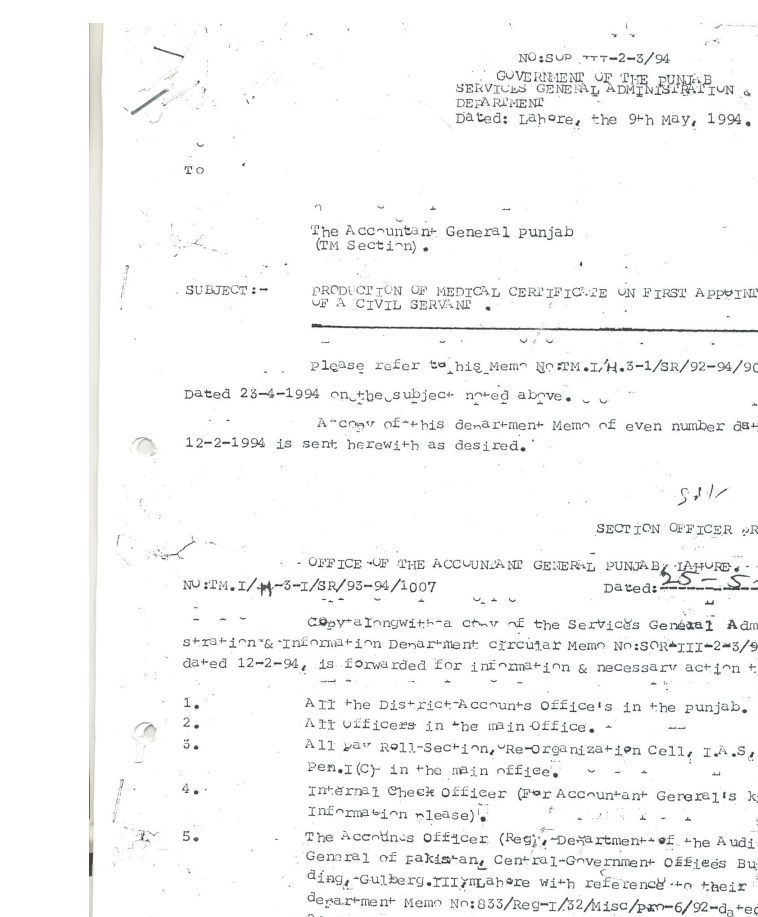 NO:SOR III-2-3/94
GOVERNMENT OF THE PUNJAB
SERVICES GENERAL ADMINISTRATION &
DEPARTMENT
Dated: Lahore, the 9th May, 1994.
To
The Accountant General Punjab
(TM Section).
SUBJECT:- PRODUCTION OF MEDICAL CERTIFICATE ON FIRST APPOINT
OF A CIVIL SERVANT .
Please refer to his Memo No:TM.I/H.3-1/SR/92-94/90
Dated 23-4-1994 on the subject noted above.
A copy of this department Memo of even number dat
12-2-1994 is sent herewith as desired.
SECTION OFFICER
OFFICE OF THE ACCOUNTANT GENERAL PUNJAB, LAHORE.
NO:TM.I/H-3-I/SR/93-94/1007 Dated: 25-5-
Copy alongwith a copy of the Services General Adm
stration & Information Department circular Memo No:SOR-III-2-3/9
dated 12-2-94, is forwarded for information & necessary action t
1. All the District Accounts Office's in the punjab.
2. All Officers in the main Office.
3. All pay Roll-Section, Re-Organization Cell, I.A.S,
Pen.I(C) in the main office.
4. Internal Check Officer (For Accountant General's k
Information please).
5. The Accounts Officer (Reg), Department of the Audi
General of Pakistan, Central Government Offices Bu
ding, Gulberg.III, Lahore with reference to their
department Memo No:833/Reg-I/32/Misc/pro-6/92-dated